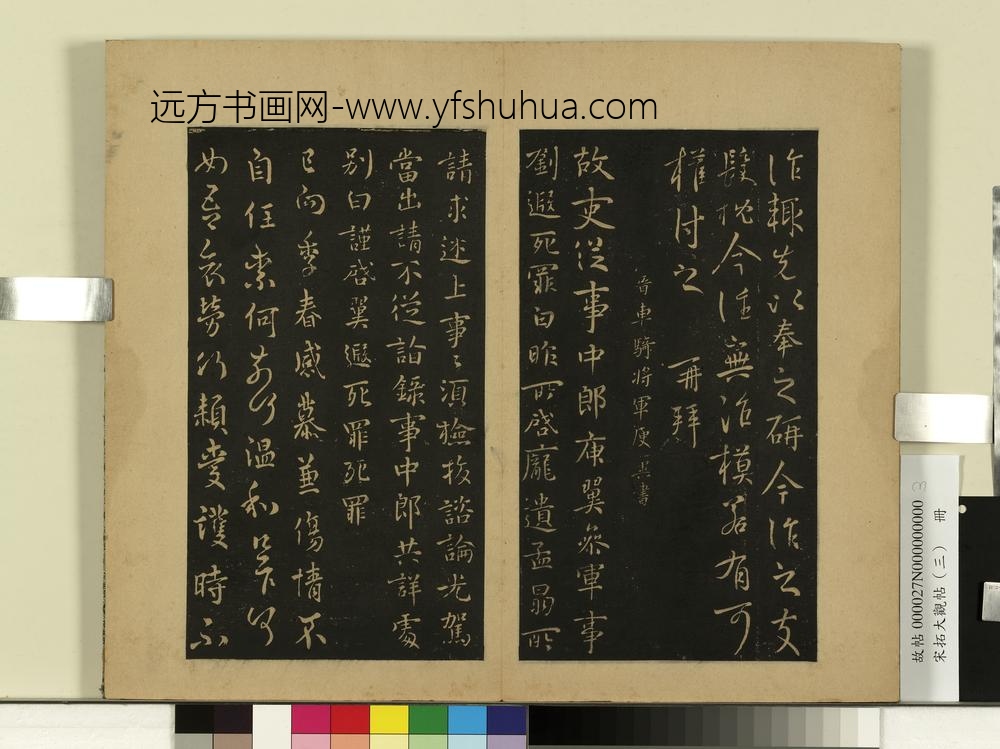 远方书画网-www.yfshuhua.com
作輙先以奉之研今作之支
髮忱今住無次模若有可
權付之 再拜
晉車騎將軍庾翼書
故吏從事中郎庾翼參軍事
劉遐死罪白昨所啓龐遺孟晶所
請求迷上事々須檢校諮論光駕
當出請不從詣錄事中郎共詳處
別白謹啓翼遐死罪死罪
已向季春感慕兼傷情不
自任柰何奈何溫和
如吾哀勞 時不
故帖000027N000000000 3
宋拓大觀帖（三） 冊